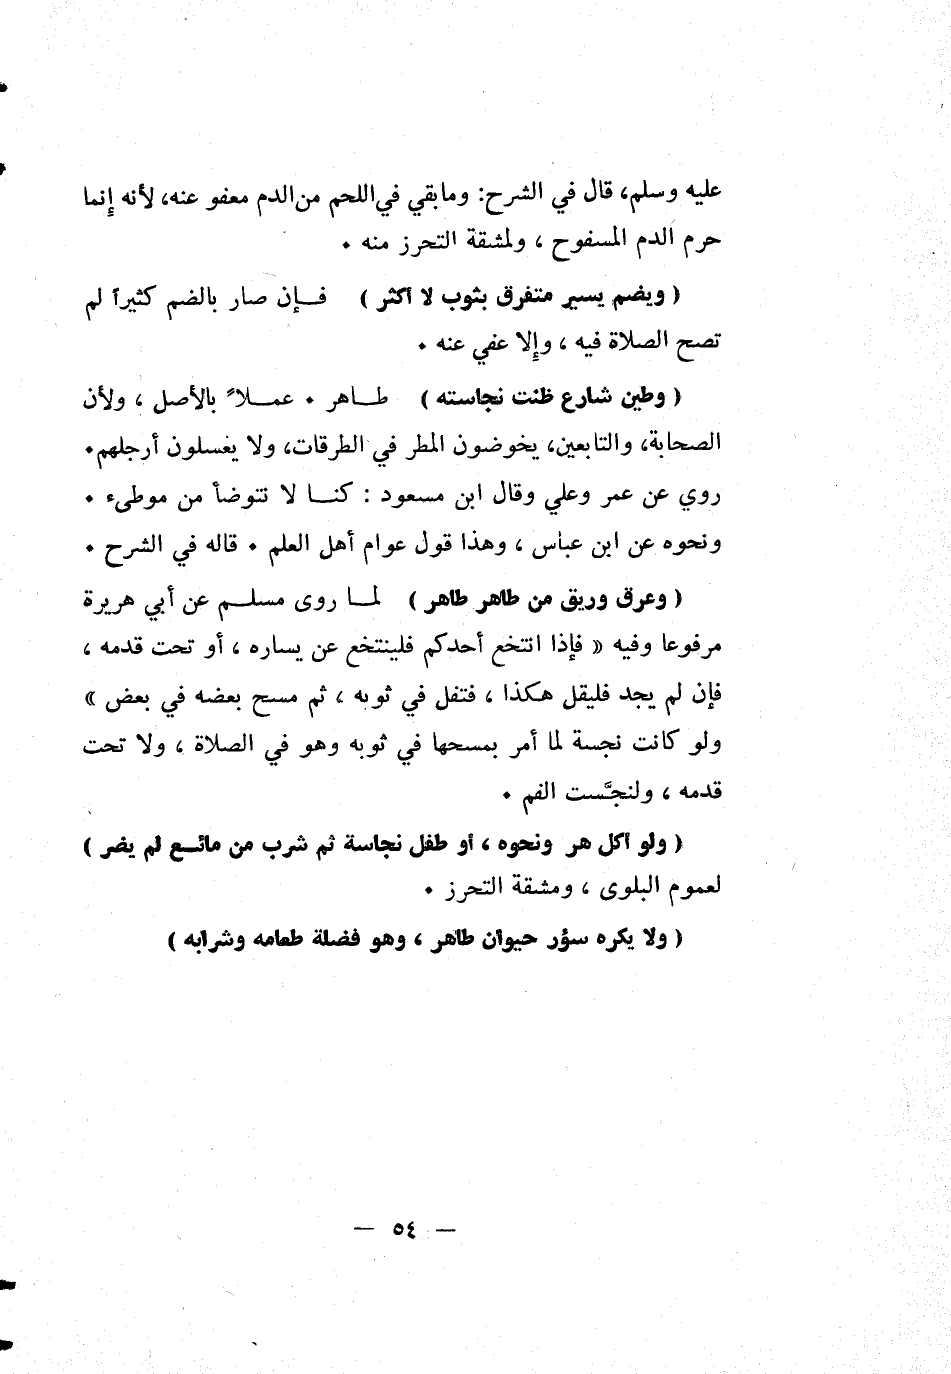 عليه وسلم، قال في الشرح: ومابقي في اللحم من الدم معفو عنه، لأنه إنما
حرم الدم المسفوح ، ولمشقة التحرز منه .
( ويضم يسير متفرق بثوب لا أكثر ) فإن صار بالضم كثيراً لم
تصح الصلاة فيه ، وإلا عفي عنه .
( وطين شارع ظنت نجاسته ) طاهر . عملاً بالأصل ، ولأن
الصحابة، والتابعين، يخوضون المطر في الطرقات، ولا يغسلون أرجلهم.
روي عن عمر وعلي وقال ابن مسعود : كنا لا نتوضأ من موطىء .
ونحوه عن ابن عباس ، وهذا قول عوام أهل العلم . قاله في الشرح .
( وعرق وريق من طاهر طاهر ) لما روى مسلم عن أبي هريرة
مرفوعا وفيه « فإذا انتخع أحدكم فلينتخع عن يساره ، أو تحت قدمه ،
فإن لم يجد فليقل هكذا ، فتفل في ثوبه ، ثم مسح بعضه في بعض »
ولو كانت نجسة لما أمر بمسحها في ثوبه وهو في الصلاة ، ولا تحت
قدمه ، ولنجَّست الفم .
( ولو أكل هر ونحوه ، أو طفل نجاسة ثم شرب من مائع لم يضر )
لعموم البلوى ، ومشقة التحرز .
( ولا يكره سؤر حيوان طاهر ، وهو فضلة طعامه وشرابه )
— ٥٤ —